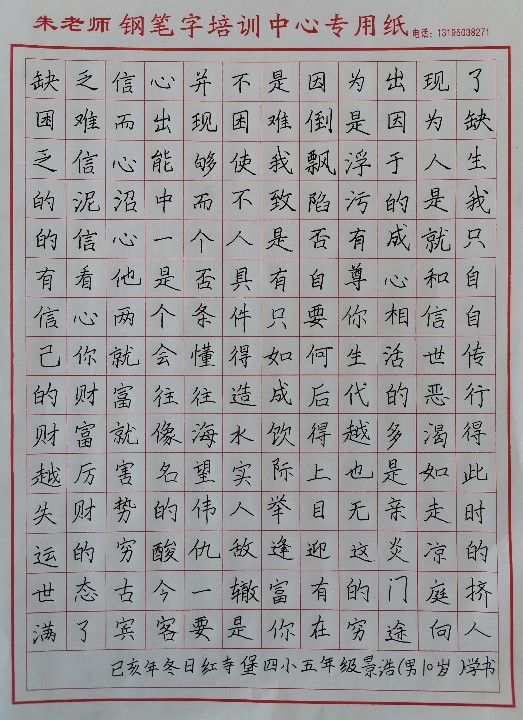 朱老师 钢笔字培训中心专用纸 电话:13195038271
缺乏信心并不是因为出现了
困难而出现困难倒是因为缺
乏信心能够使我飘浮于人生
的泥沼中而不致陷污的是我
的信心一个人是否有成就只
有看他是否具有自尊心和自
信心两个条件只要你相信自
己你就会懂得如何生活世传
的财富往往造成后代的恶行
财富就像海水饮得越多渴得
越厉害名望实际上也是如此
失财势的伟人举目无亲走时
运的穷酸仇敌逢迎这炎凉的
世态古今一辙富有的门庭挤
满了宾客要是你在穷途向人
己亥年冬日红寺堡四小五年级景浩(男10岁)学书